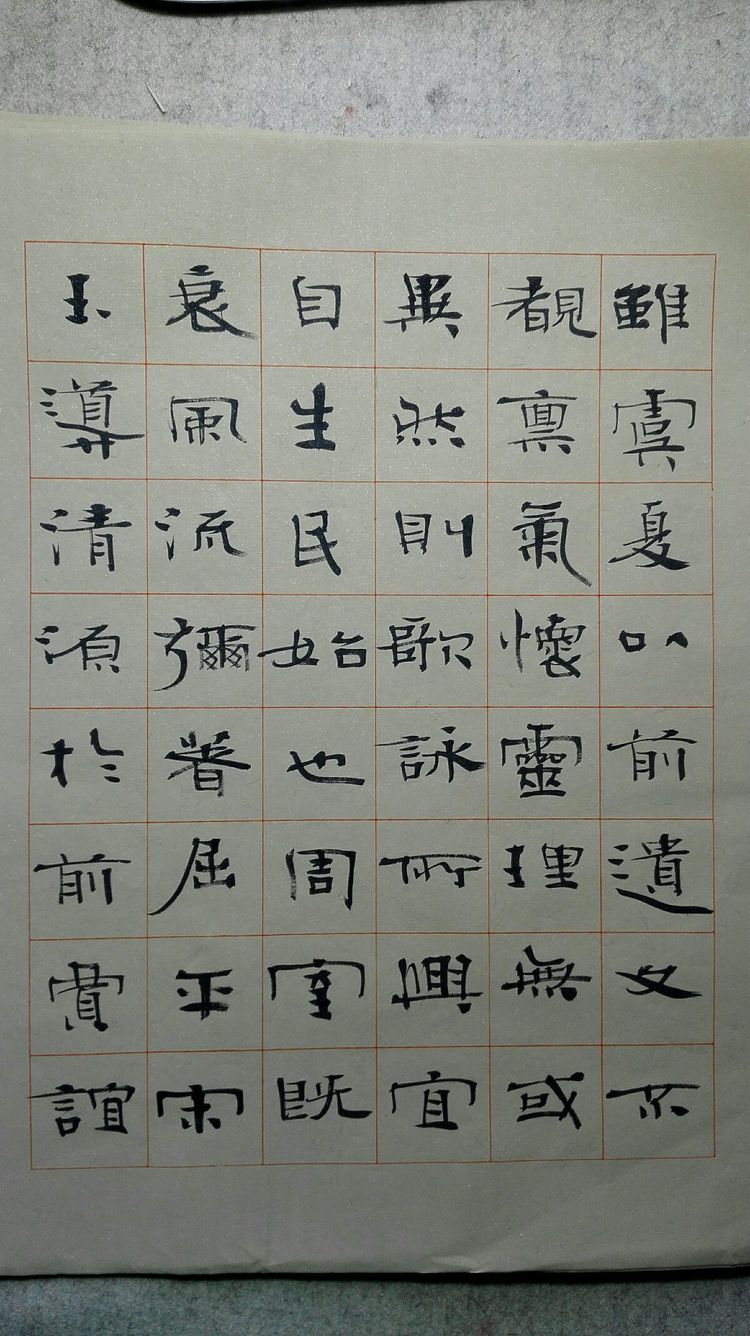 雖虞夏以前遺文不
覩稟氣懷靈理無或
異然則歌詠所興宜
自生民始也周室既
衰風流彌著屈平宋
玉導清源於前賈誼